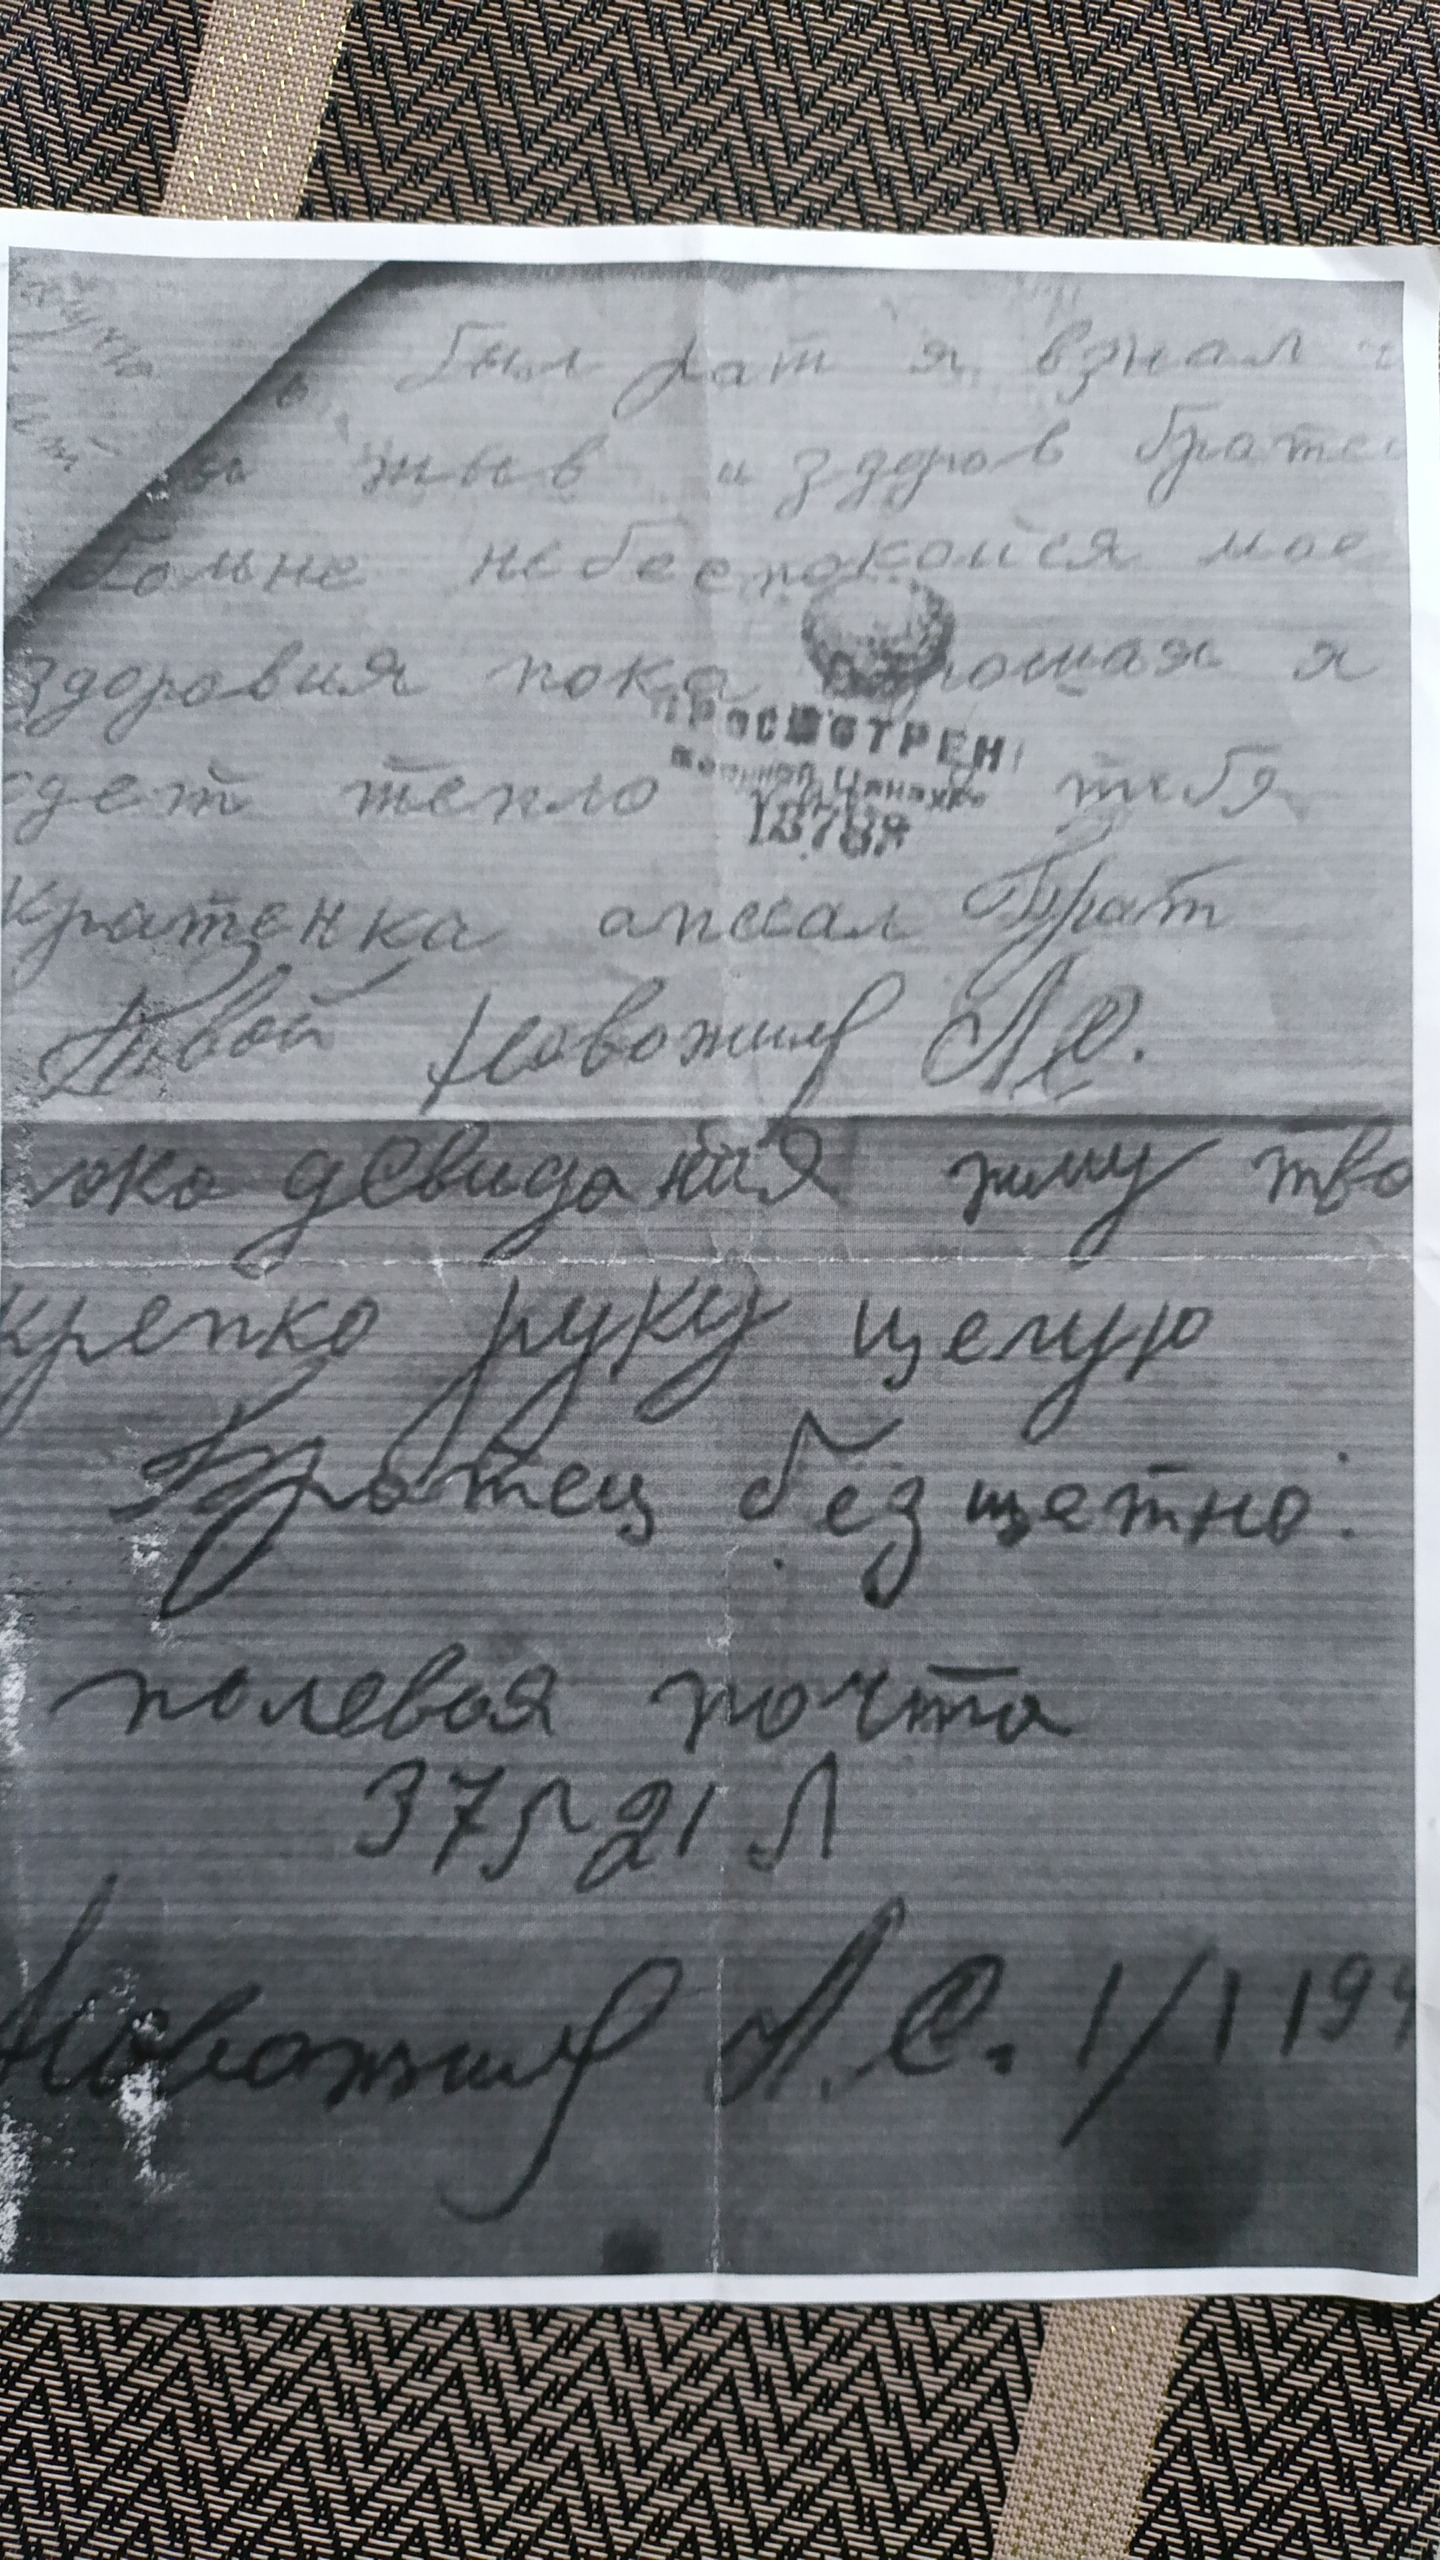 был рат я взнал
жыв и здоров братец
больне небеспокойся мое
здоровия пока хорошая я
одет тепло тебя
кратенка описал Брат
Твой Новожилов А С.
ПРОСМОТРЕНО
Военной Цензурой
18788
пока довидания жму тво
крепко руку целую
Братец безщетно.
полевая почта
37521 Л
Новожилов А. С. 1/1 194